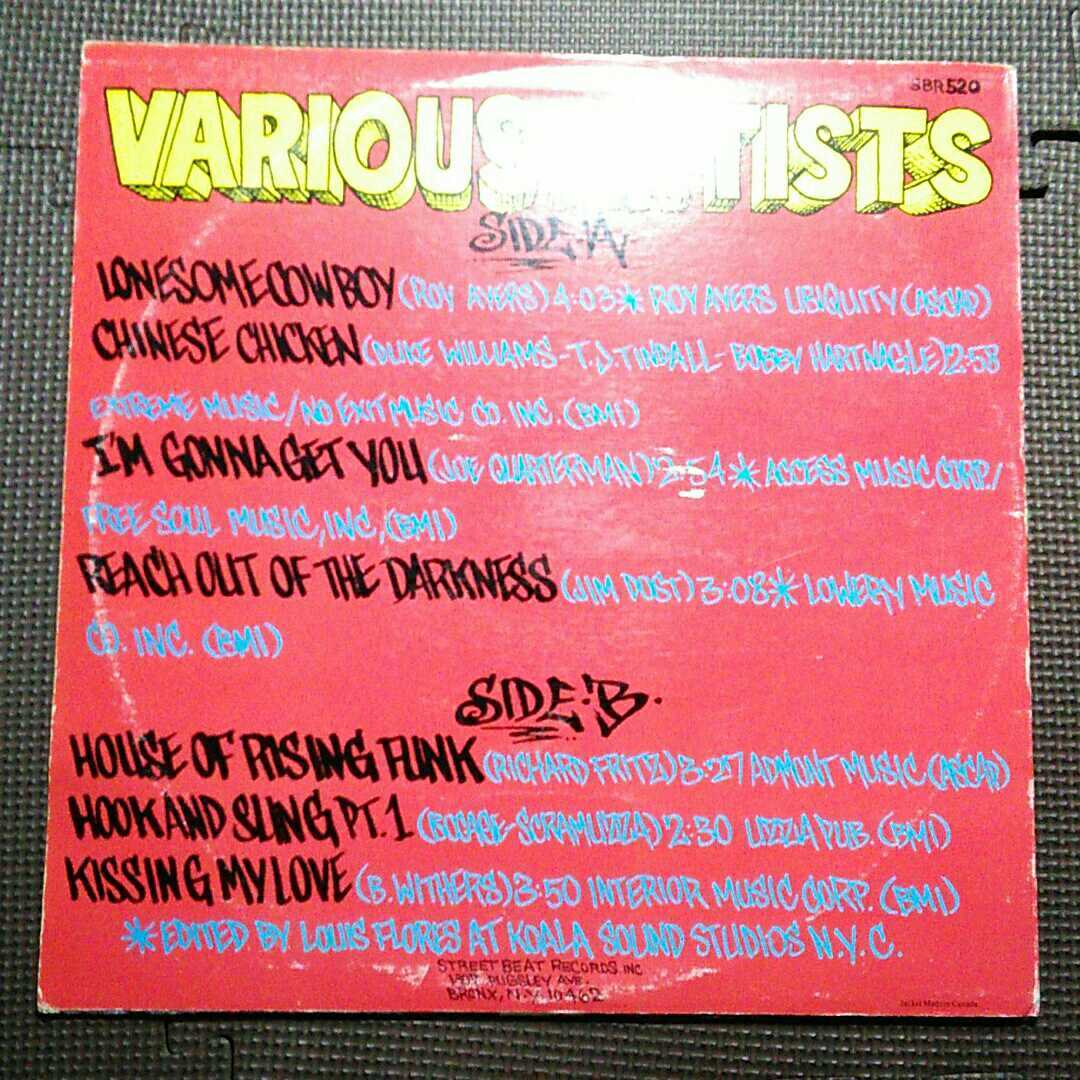 SBR520
VARIOUS TISTS
SIDE A
LONESOME COWBOY (ROY AYERS) 4:03* ROY AYERS UBIQUITY (ASCAP)
CHINESE CHICKEN (DUKE WILLIAMS - T.J. TINDALL - BOBBY HARTNAGLE) 2:58
EXTREME MUSIC / NO EXIT MUSIC CO. INC. (BMI)
I'M GONNA GET YOU (JOE QUARTERMAN) 2:54* ACCESS MUSIC CORP./
FREE SOUL MUSIC, INC, (BMI)
REACH OUT OF THE DARKNESS (JIM POST) 3:08* LOWERY MUSIC
CO. INC. (BMI)
SIDE B.
HOUSE OF RISING FUNK (RICHARD FRITZ) 3:27 ADMONT MUSIC (ASCAP)
HOOK AND SLING PT. 1 (BOCAGE-SCRAMUZZA) 2:30 UZZA PUB. (BMI)
KISSING MY LOVE (B. WITHERS) 3:50 INTERIOR MUSIC CORP. (BMI)
* EDITED BY LOUIS FLORES AT KOALA SOUND STUDIOS N.Y.C.
STREET BEAT RECORDS, INC
PUGSLEY AVE.
BRONX, N.Y. 10462
Jacket Made in Canada